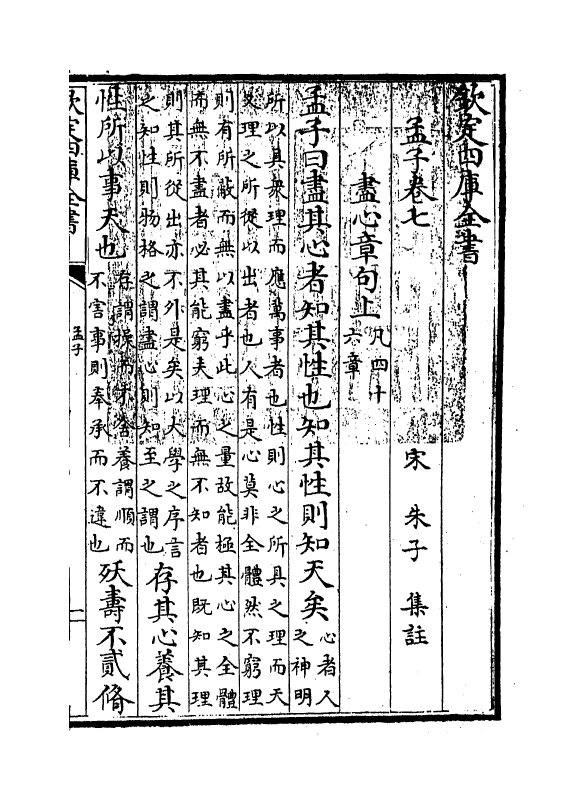 欽定四庫全書
孟子卷七 宋 朱子 集註
盡心章句上 凡四十
六章
孟子曰盡其心者知其性也知其性則知天矣 心者人
之神明
所以具衆理而應萬事者也性則心之所具之理而天
又理之所從以出者也人有是心莫非全體然不窮理
則有所蔽而無以盡乎此心之量故能極其心之全體
而無不盡者必其能窮夫理而無不知者也既知其理
則其所從出亦不外是矣以大學之序言
之知性則物格之謂盡心則知至之謂也
存其心養其
性所以事天也
存謂操而不舍養謂順而
不害事則奉承而不違也
殀壽不貳脩
欽定四庫全書
孟子
一